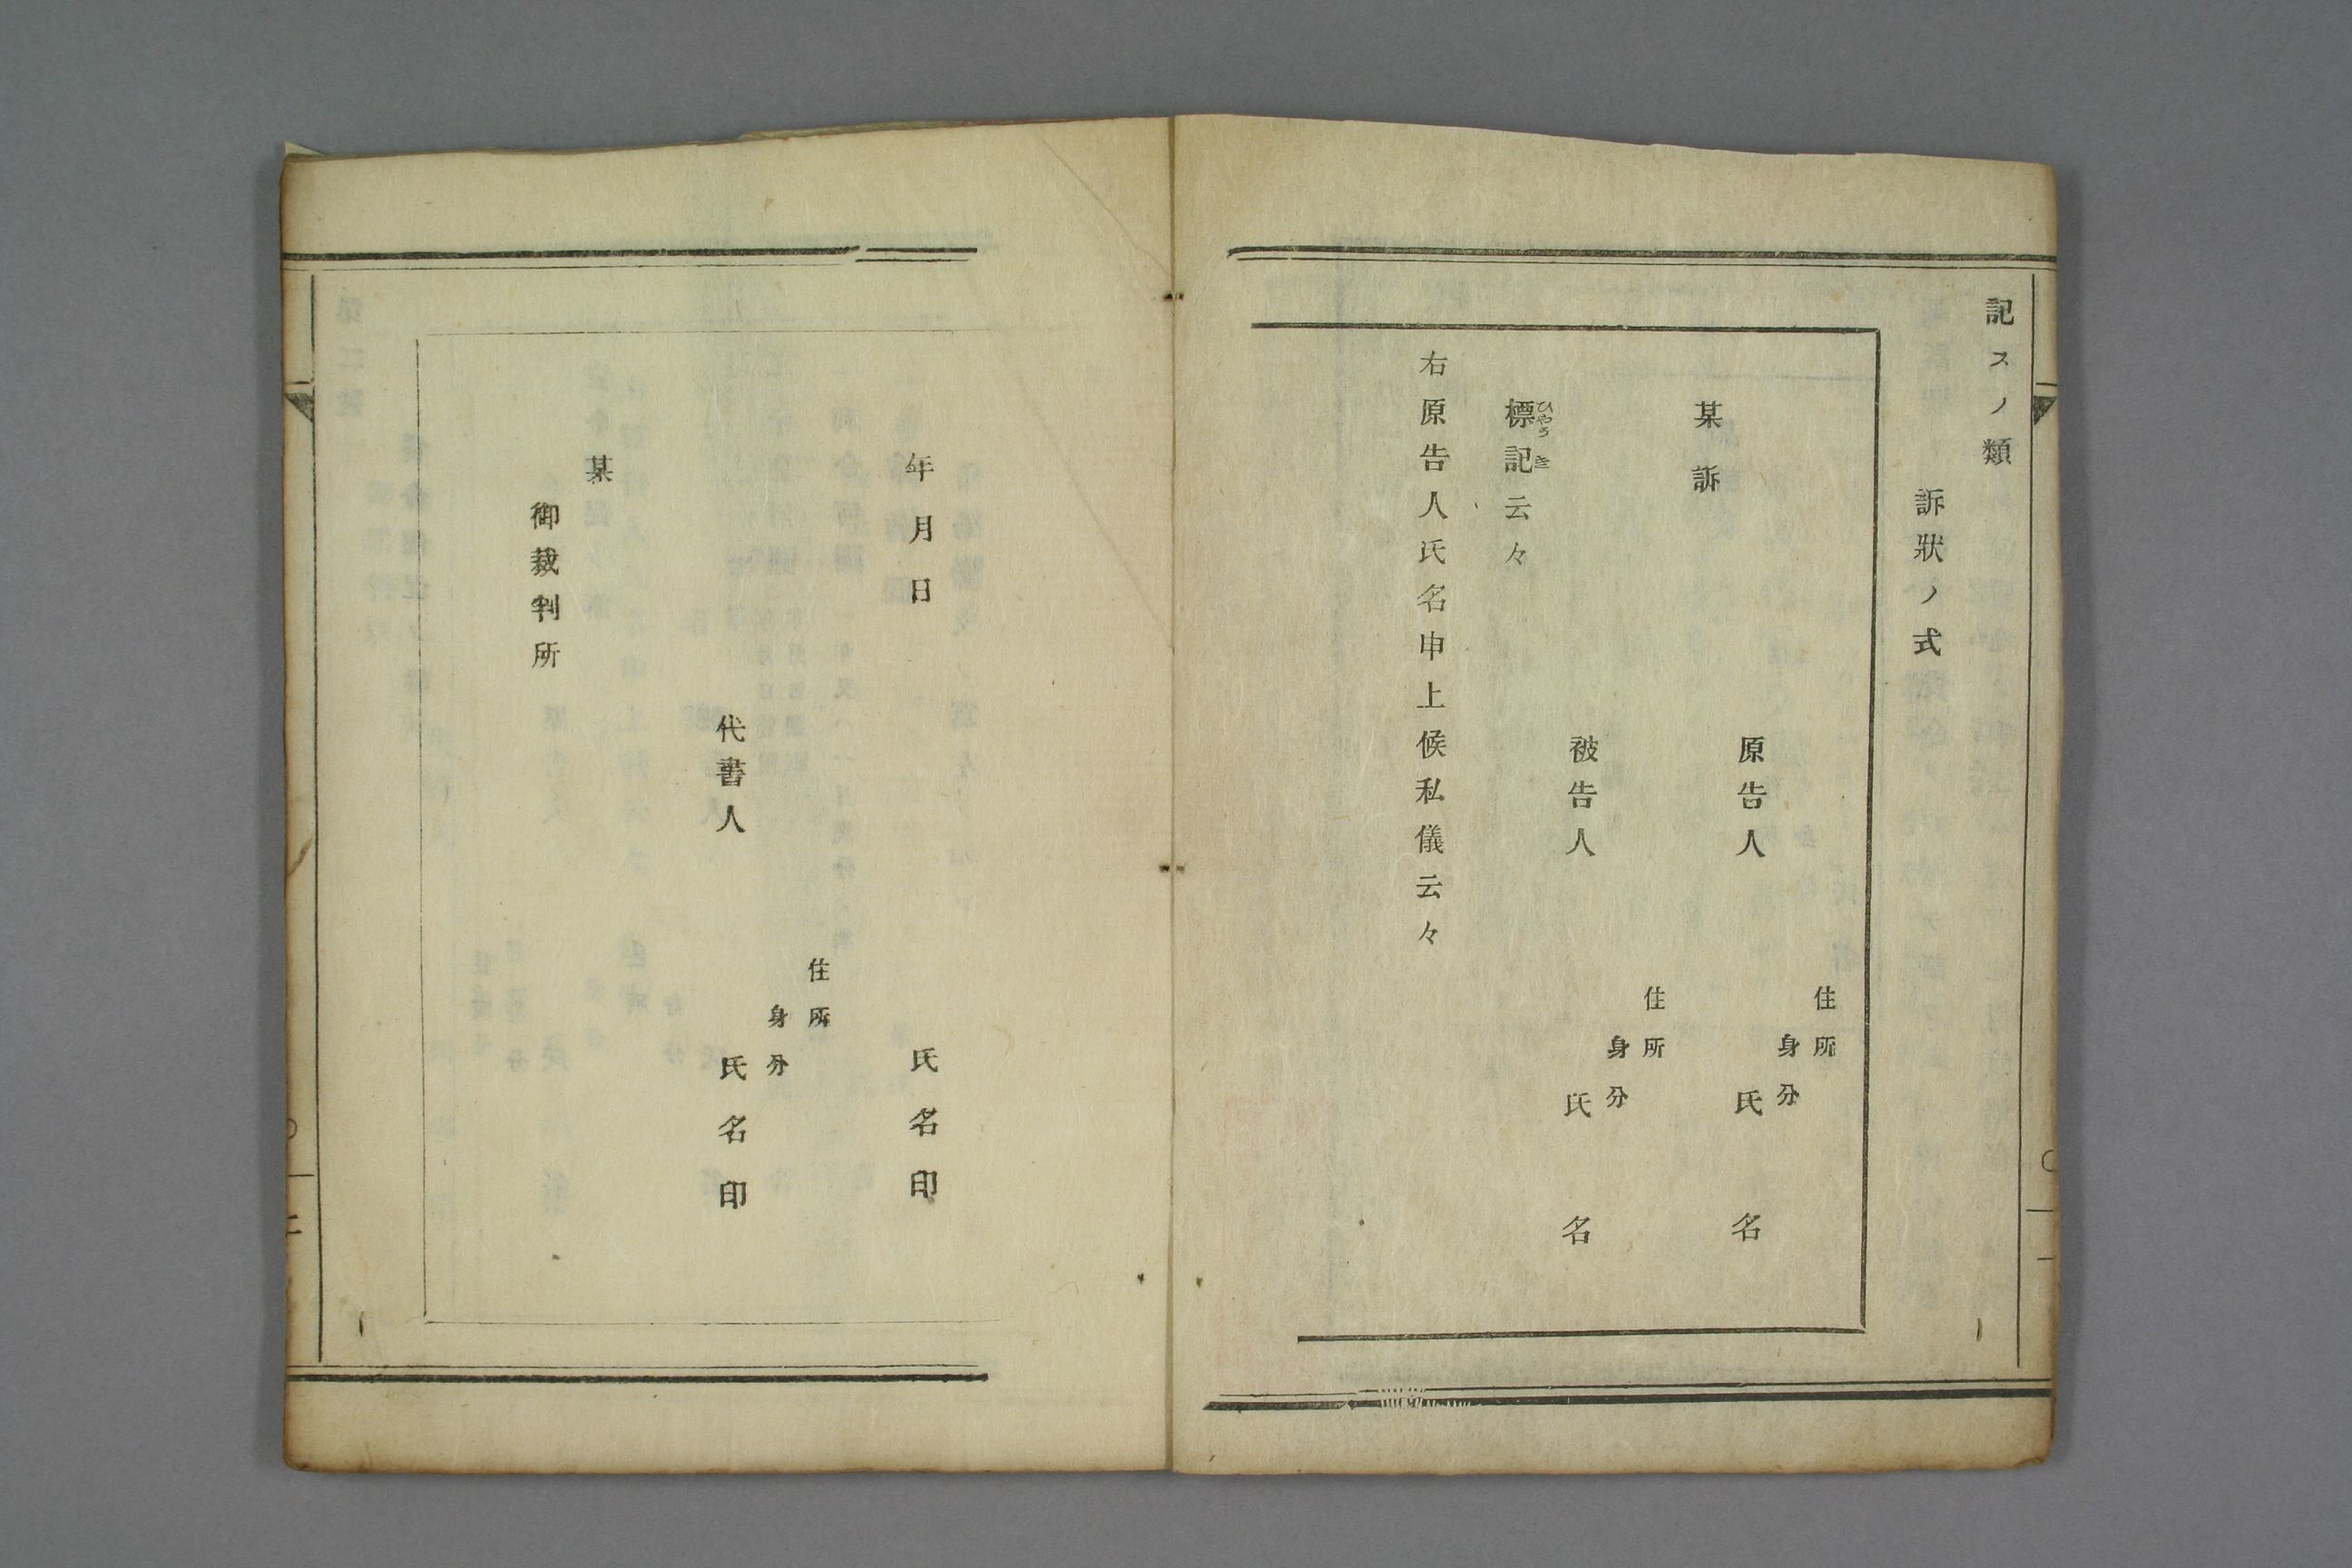 記スノ類
訴狀ノ式
某訴
住所
身分
原告人 氏名
住所
身分
被告人 氏名
ひやうき
標記云々
右原告人氏名申上候私儀云々
年月日 氏名印
住所
身分
代書人 氏名印
某
御裁判所